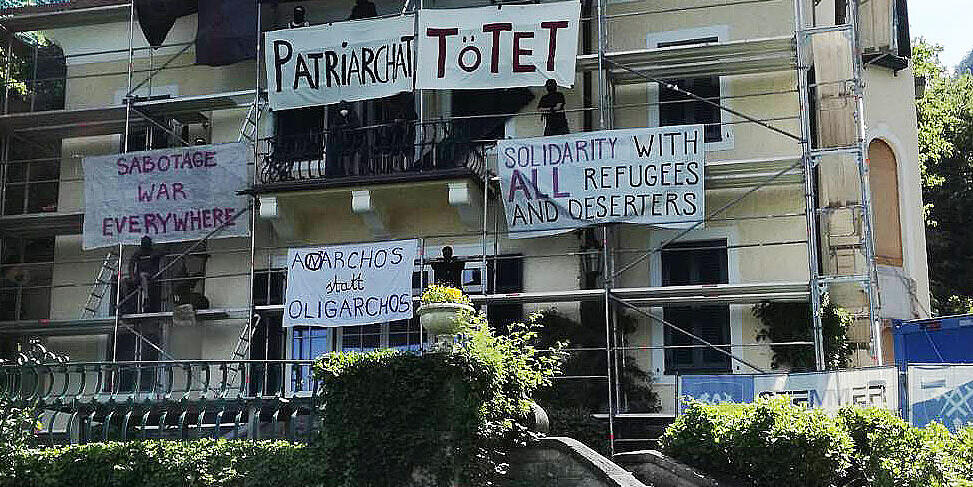 PATRiARCHAT TöTET
SABOTAGE
WAR
EVERYWHERE
SOLIDARITY WITH
ALL REFUGEES
AND DESERTERS
ANARCHOS
statt
OLIGARCHOS